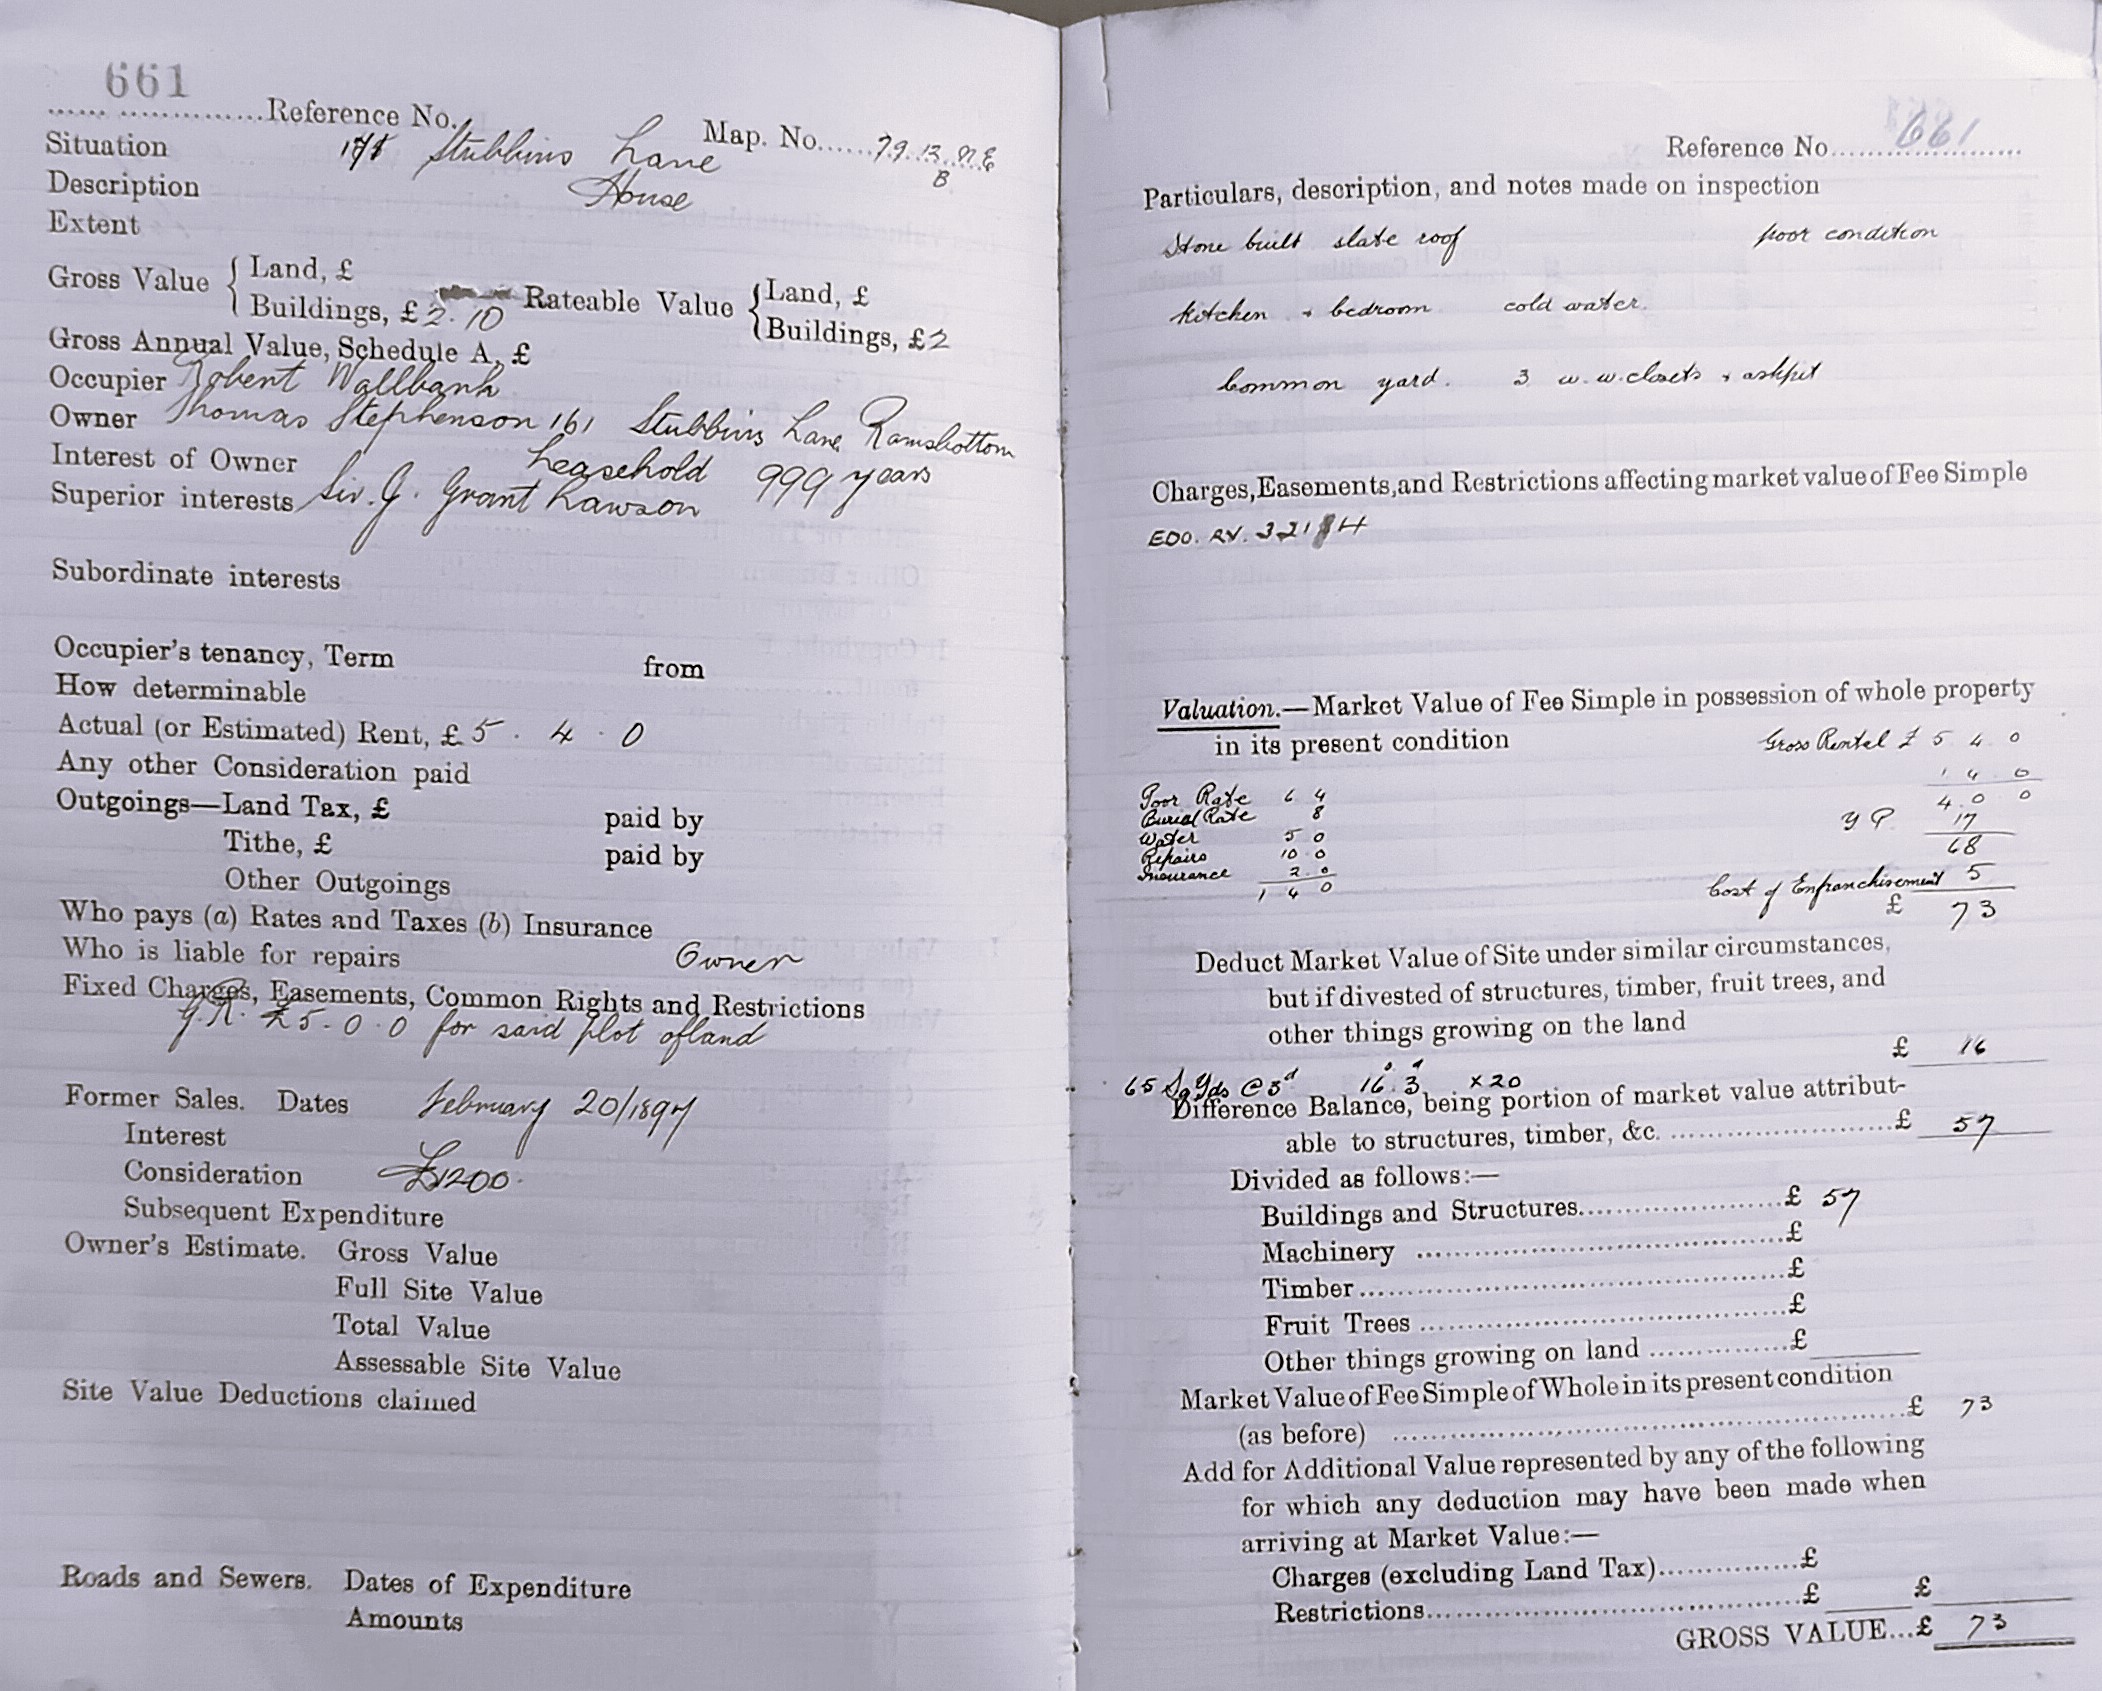 661
...... ...............Reference No.
Map. No......79.13.N.E
B
Situation Stubbins Lane
Description House
Extent
Gross Value { Land, £
Buildings, £ 2.10 Rateable Value { Land, £
Buildings, £2
Gross Annual Value, Schedule A, £
Occupier Robert Wallbank
Owner Thomas Stephenson 161 Stubbins Lane Ramsbottom
Interest of Owner Leasehold 999 years
Superior interests Sir. J. Grant Lawson
Subordinate interests
Occupier's tenancy, Term from
How determinable
Actual (or Estimated) Rent, £ 5 . 4 . 0
Any other Consideration paid
Outgoings—Land Tax, £ paid by
Tithe, £ paid by
Other Outgoings
Who pays (a) Rates and Taxes (b) Insurance
Who is liable for repairs Owner
Fixed Charges, Easements, Common Rights and Restrictions
G.R. £5-0.0 for said plot of land
Former Sales. Dates February 20/1897
Interest
Consideration £1200.
Subsequent Expenditure
Owner's Estimate. Gross Value
Full Site Value
Total Value
Assessable Site Value
Site Value Deductions claimed
Roads and Sewers. Dates of Expenditure
Amounts
Reference No. 661
Particulars, description, and notes made on inspection
Stone built slate roof poor condition
kitchen + bedroom cold water.
Common yard. 3 w.w.closets + ashpit
Charges, Easements, and Restrictions affecting market value of Fee Simple
EDO. RV. 321 H
Valuation.—Market Value of Fee Simple in possession of whole property
in its present condition Gross Rental £ 5 4 0
1 4 0
Poor Rate 6 4 4 . 0 0
Burial Rate 8 Y P. 17
Water 5 0
Repairs 10 0 68
Insurance 2.0 Cost of Enfranchisement 5
1 4 0 £ 73
Deduct Market Value of Site under similar circumstances,
but if divested of structures, timber, fruit trees, and
other things growing on the land
£ 16
65 Sq Yds @ 3d 16s. 3d x 20
Difference Balance, being portion of market value attribut-
able to structures, timber, &c. ........................£ 57
Divided as follows:—
Buildings and Structures.....................£ 57
Machinery .......................................£
Timber.............................................£
Fruit Trees ......................................£
Other things growing on land ...............£
Market Value of Fee Simple of Whole in its present condition
(as before) .......................................................£ 73
Add for Additional Value represented by any of the following
for which any deduction may have been made when
arriving at Market Value:—
Charges (excluding Land Tax)...............£
Restrictions.......................................£ £
GROSS VALUE...£ 73